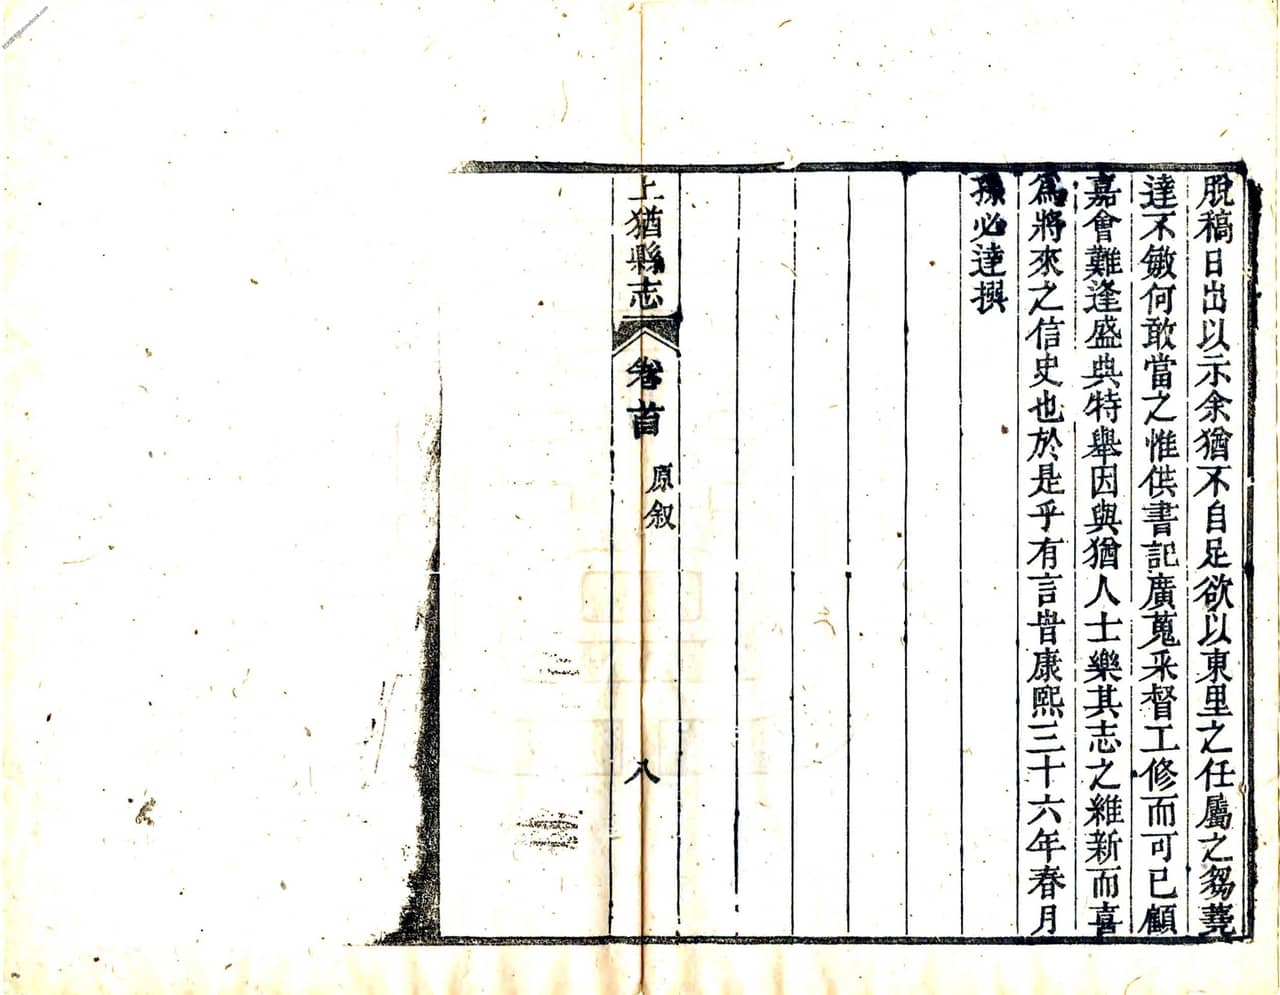 脫稿日出以示余猶不自足欲以東里之任屬之芻蕘
達不敏何敢當之惟供書記廣蒐采督工修而可已顧
嘉會難逢盛典特舉因與猶人士樂其志之維新而喜
爲將來之信史也於是乎有言旹康熙三十六年春月
孫必達撰
上猶縣志
卷首
原叙
八